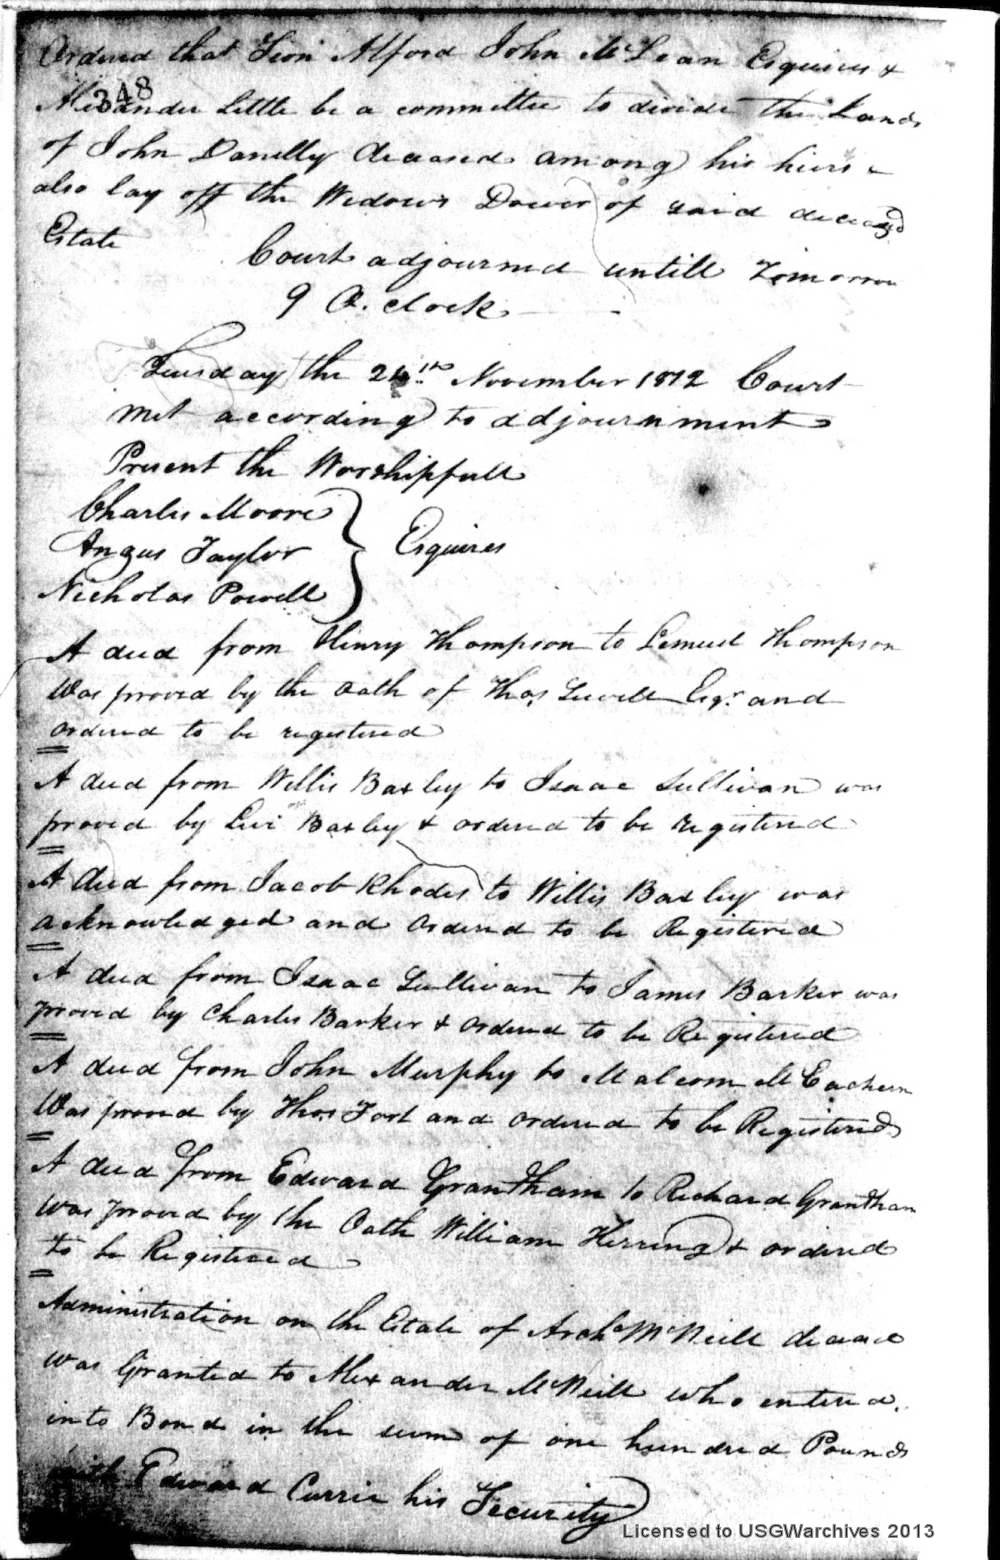 Ordered that Sion Alford John McLean Esquires &
348
Alexander Little be a committee to devide the Lands
of John Danelly deceased among his hiers &
also lay off the Widows Dower of said deceased
Estate
Court adjourned untill Tomorrow
9 O. clock
Tuesday the 24th November 1812 Court
met according to adjournment
Present the Worshipfull
Charles Moore
Angus Taylor
Esquires
Nicholas Powell
A deed from Henry Thompson to Lemuel Thompson
Was proved by the Oath of Thos Esqr and
ordered to be registered
A deed from Willis Baxley to Isaac Sullivan was
proved by Levi Baxley & ordered to be registered
A deed from Jacob Rhodes to Willis Baxley was
acknowledged and Ordered to be Registered
A deed from Isaac Sullivan to James Barker was
proved by Charles Barker & Ordered to be Registered
A deed from John Murphy to Malcom McEachern
Was proved by Thos Fort and Ordered to be Registered
A deed from Edward Grantham to Richard Grantham
was proved by the Oath William Herring & ordered
to be Registered
Administration on the Estate of Archd McNeill deceased
was Granted to Alexander McNeill who entered
into Bond in the sum of one hundred Pounds
with Edward Currie his Security
Licensed to USGWarchives 2013